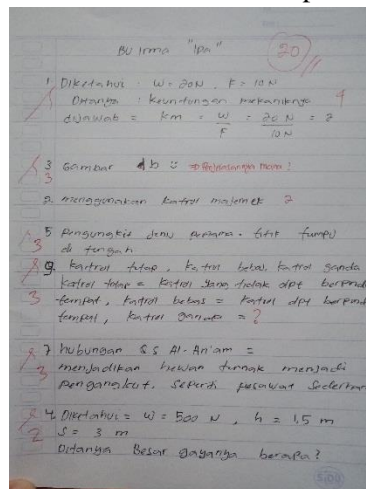 Bu Irma "Ipa"
20
1 Diketahui : W = 20N , F = 10 N
Ditanya : keuntungan mekaniknya 4
dijawab = km = W/F = 20 N/10 N = 2
3 Gambar db :) → Penjelasannya mana?
3
2. menggunakan katrol majemuk 2
5 Pengungkit jenis pertama. titik tumpu
3 di tengah
9. katrol tetap, katrol bebas, katrol ganda
katrol tetap = katrol yang tidak dpt berpind
3 tempat, katrol bebas = katrol dpt berpind
tempat, katrol ganda = ?
7 hubungan QS Al-An'am =
3 menjadikan hewan ternak menjadi
pengangkut. seperti pesawat sederhan
4 Diketahui = W = 500 N , h = 1,5 m
2 S = 3 m
Ditanya Besar gayanya berapa?
SIDU